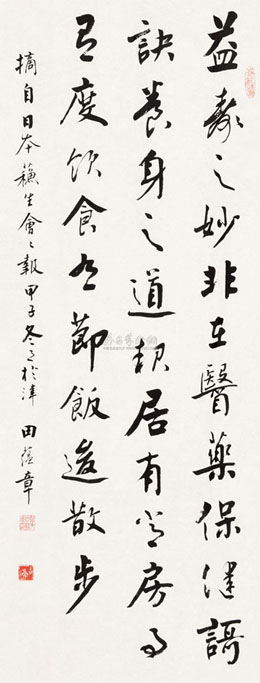 益壽之妙非在醫藥保健謌
訣養身之道起居有常房事
有度飲食有節飯後散步
摘自日本蘓生會々報甲子冬月於津田蘊章